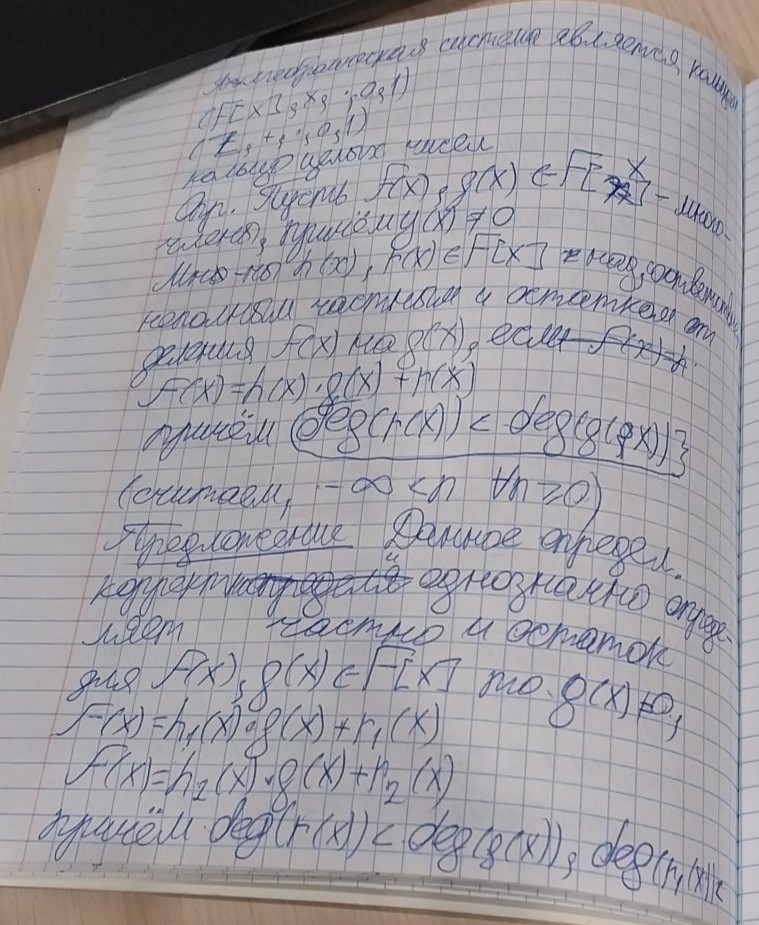 Алгебраическая система является кольцом
(F[x], x, ·, 0, 1)
(Z, +, ·, 0, 1)
кольцо целых чисел
Опр. Пусть f(x), g(x) ∈ F[x] - много-
члены, причём g(x) ≠ 0
Мно-ны h(x), r(x) ∈ F[x] - наз. соответств
неполным частным и остатком от
деления f(x) на g(x), если
f(x)=h(x)·g(x)+r(x)
причём deg(r(x)) < deg(g(x))}
(считаем, -∞ < n ∀n ≥ 0)
Предложение Данное определ.
коррект и однозначно опреде-
ляет частно и остаток
для f(x), g(x) ∈ F[x] то. g(x) ≠ 0,
f(x)=h₁(x)·g(x)+r₁(x)
f(x)=h₂(x)·g(x)+r₂(x)
причём deg(r(x)) < deg(g(x)), deg(r₁(x)) <